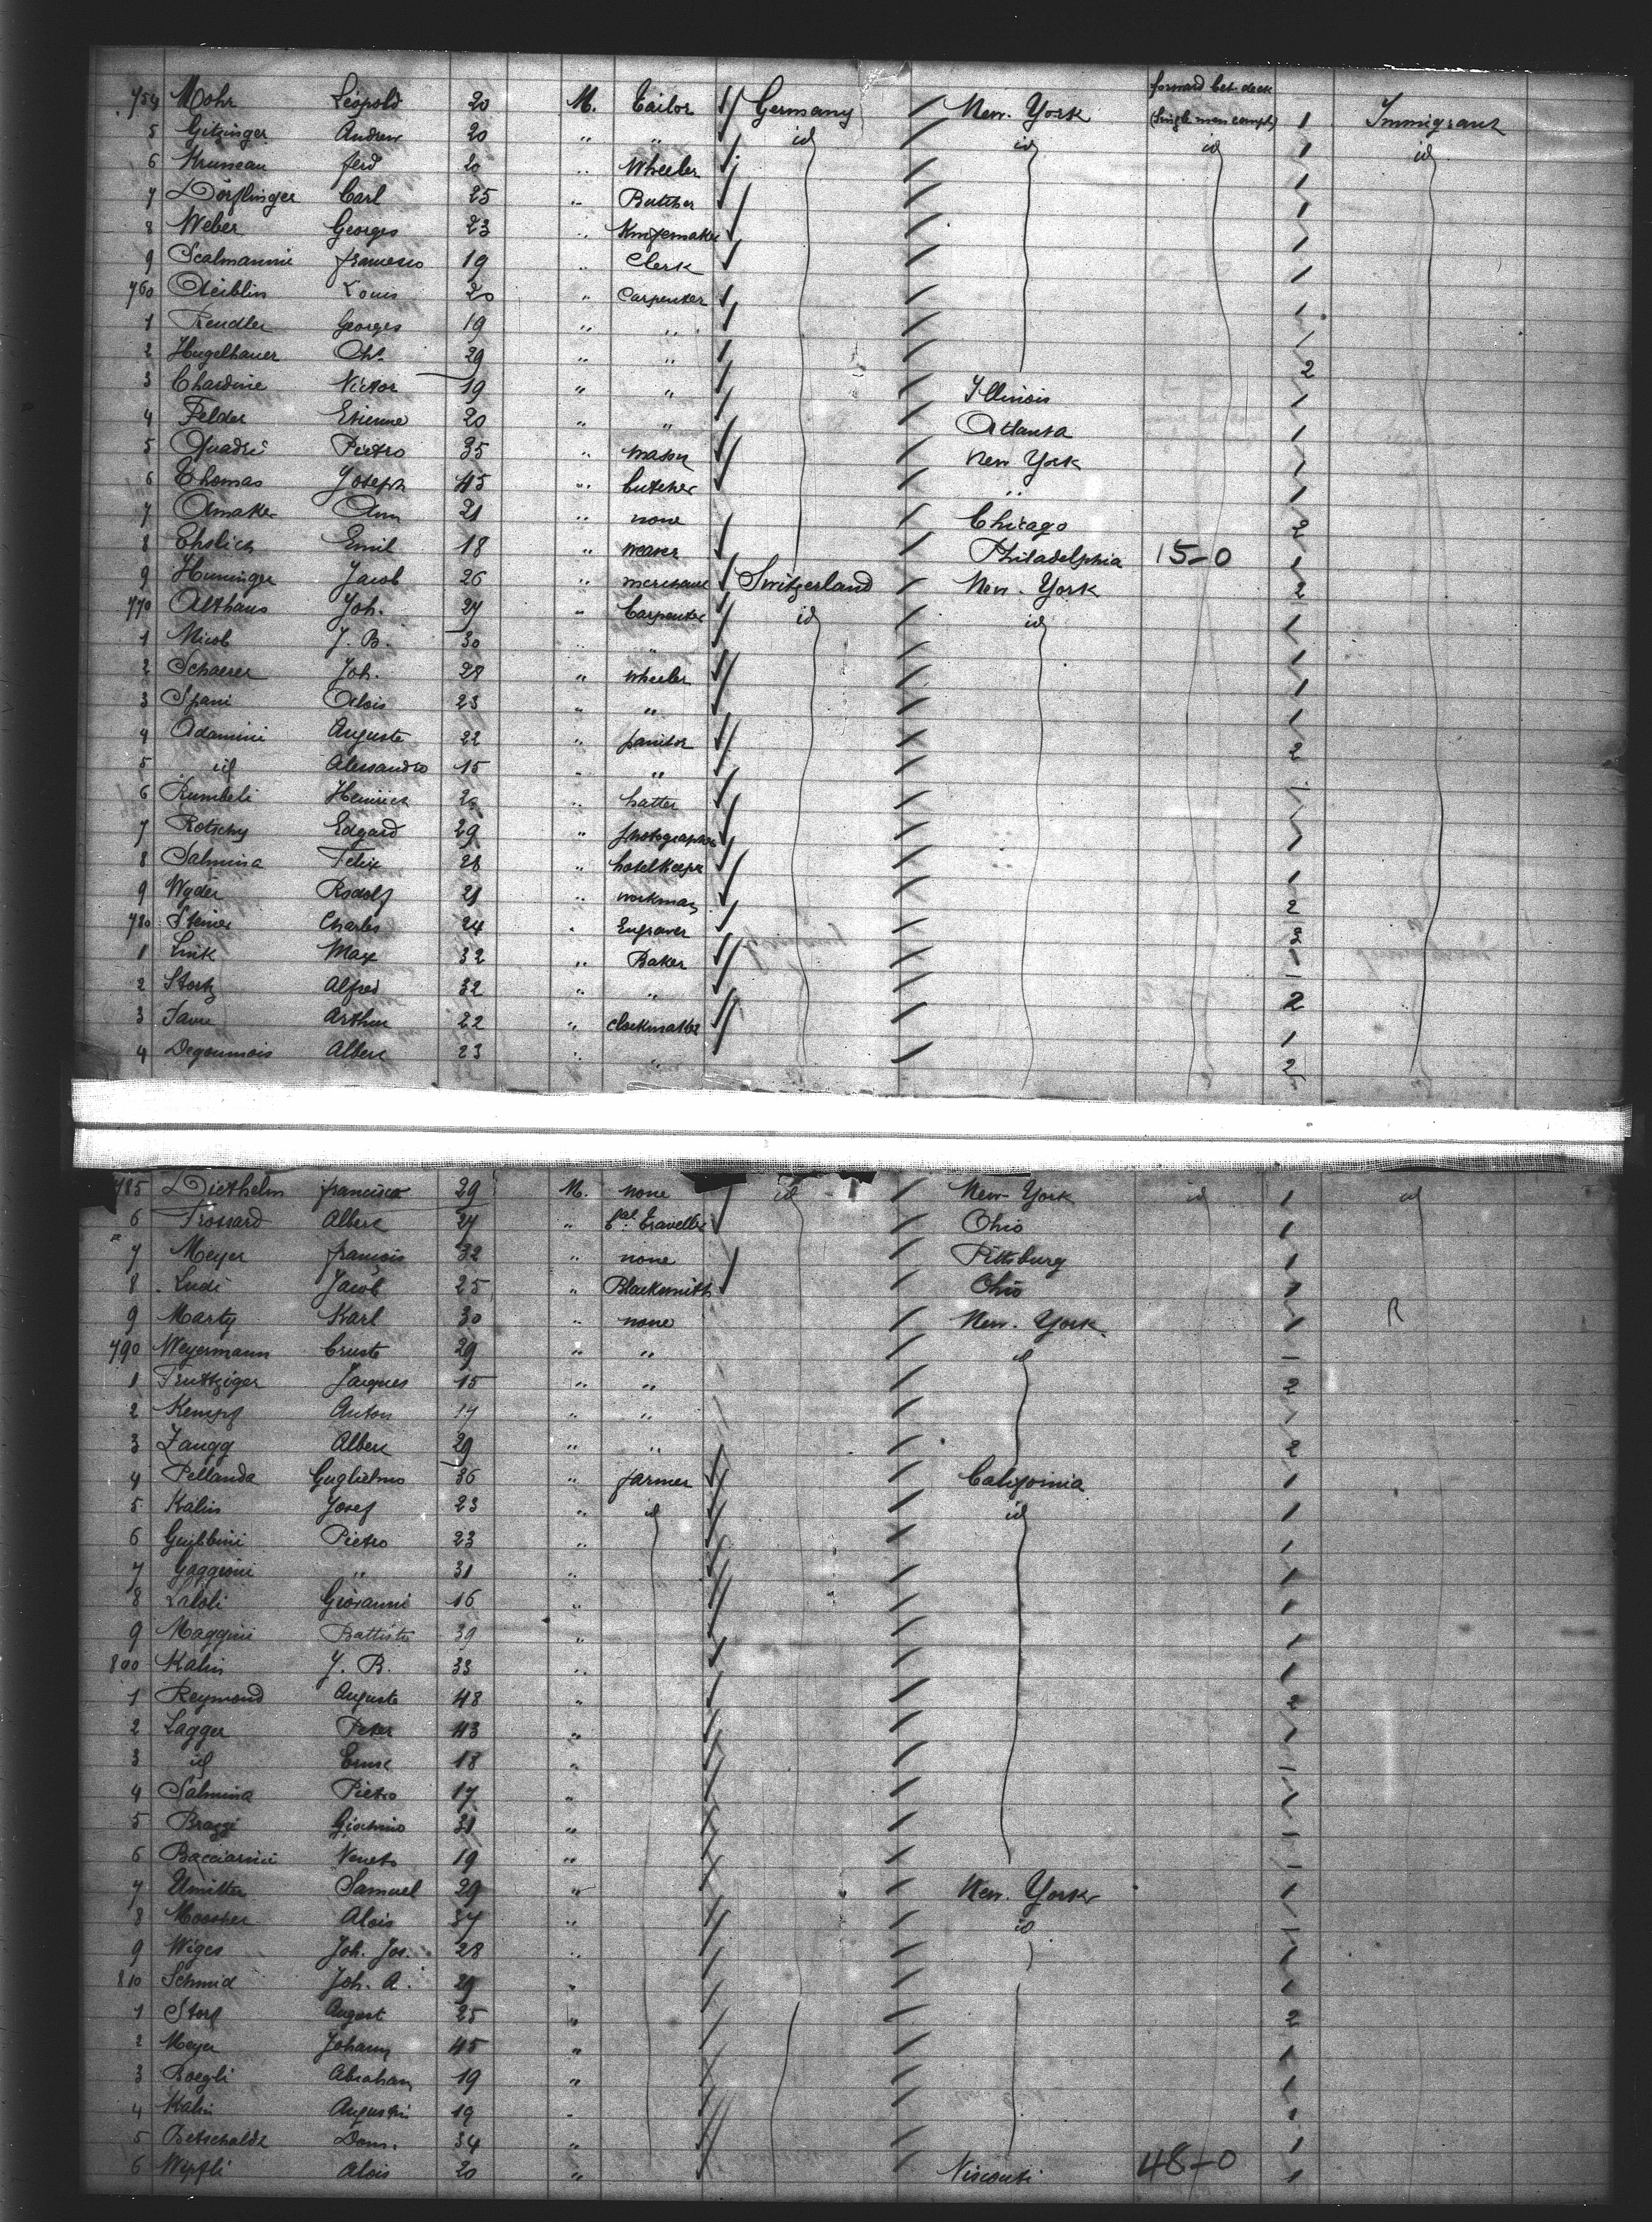 forward bet. deck
754 Mohr Léopold 20 M. Tailor Germany New. York (Single men compt) 1 Immigrant
5 Gitzinger Andrew 20 " " id id id 1 id
6 Kruneau ferd 20 " Wheeler 1
7 Dörflinger Carl 25 " Butcher 1
8 Weber Georges 23 " Knifemaker 1
9 Scalmanini francesco 19 " Clerk 1
760 Louis 20 " Carpenter 1
1 Rendler Georges 19 " " 1
2 Hugelhauer Chs. 29 " " 2
3 Chardine Victor 19 " " Illinois 1
4 Felder Etienne 20 " " Atlanta 1
5 Quadri Pietro 35 " mason New York 1
6 Thomas Joseph 45 " butcher " 1
7 Amaker Ann 21 " none Chicago 2
8 Ehrlich Emil 18 " weaver Philadelphia 15-0 1
9 Huninger Jacob 26 " merchant Switzerland New. York 2
770 Althaus Joh. 27 " Carpenter id id 1
1 Nicob J. B. 30 " " 1
2 Schaerer Joh. 28 " wheeler 1
3 Spani Alois 23 " " 1
4 Adamini Auguste 22 " janitor 2
5 id Alessandro 15 " " 1
6 Rumbeli Heinrich " hatter 1
7 Rotschy Edgard 29 " photographer 1
8 Salmina Felix 28 " hotelkeeper 1
9 Wyder Rodolf 21 " workman 2
780 Steiner Charles 24 " Engraver 2
1 Link Max 32 " Baker 1
2 Stortz Alfred 32 " " 2
3 Favre Arthur 22 " clockmaker 1
4 Degoumois Albert 23 " " 2
785 Diethelm francisco 29 M. none id New-York id 1 id
6 Frossard Albert 27 " Cal Traveller Ohio 1
7 Meyer françois 32 " none Pittsburg 1
8 Ludi Jacob 25 " Blacksmith Ohio 1
9 Marty Karl 30 " none New. York. 1 R
790 Weyermann Ernste 29 " " id 1
1 Truttziger Jacques 15 " " 2
2 Kempf Anton 17 " " 1
3 Zaugg Albert 29 " " 2
4 Pellanda Guglielmo 36 " farmer California 1
5 Kälin Josef 23 " id id 1
6 Guibbini Pietro 23 " 1
7 Gaggioni " 31 " 1
8 Giovanni 16 " 1
9 Maggini Battista 39 " 1
800 Kälin J. B. 33 " 1
1 Reymond Auguste 48 " 2
2 Lagger Peter 43 " 1
3 id Ernst 18 " 1
4 Salmina Pietro 17 " 1
5 Braggi Giachino 31 " 1
6 Bacciarini Veneto 19 " 1
7 Samuel 29 " New. York 1
8 Moosher Alois 37 " id 1
9 Wiges Joh. Jos. 28 " 1
810 Schmid Joh. A. 29 " 1
1 Storf August 25 " 2
2 Meyer Johann 45 " 1
3 Boegli Abraham 19 " 1
4 Kälin Augustin 19 " 1
5 Betschaldt Dom. 34 " 1
6 Wipfli Alois 20 " Visconti 48-0 1